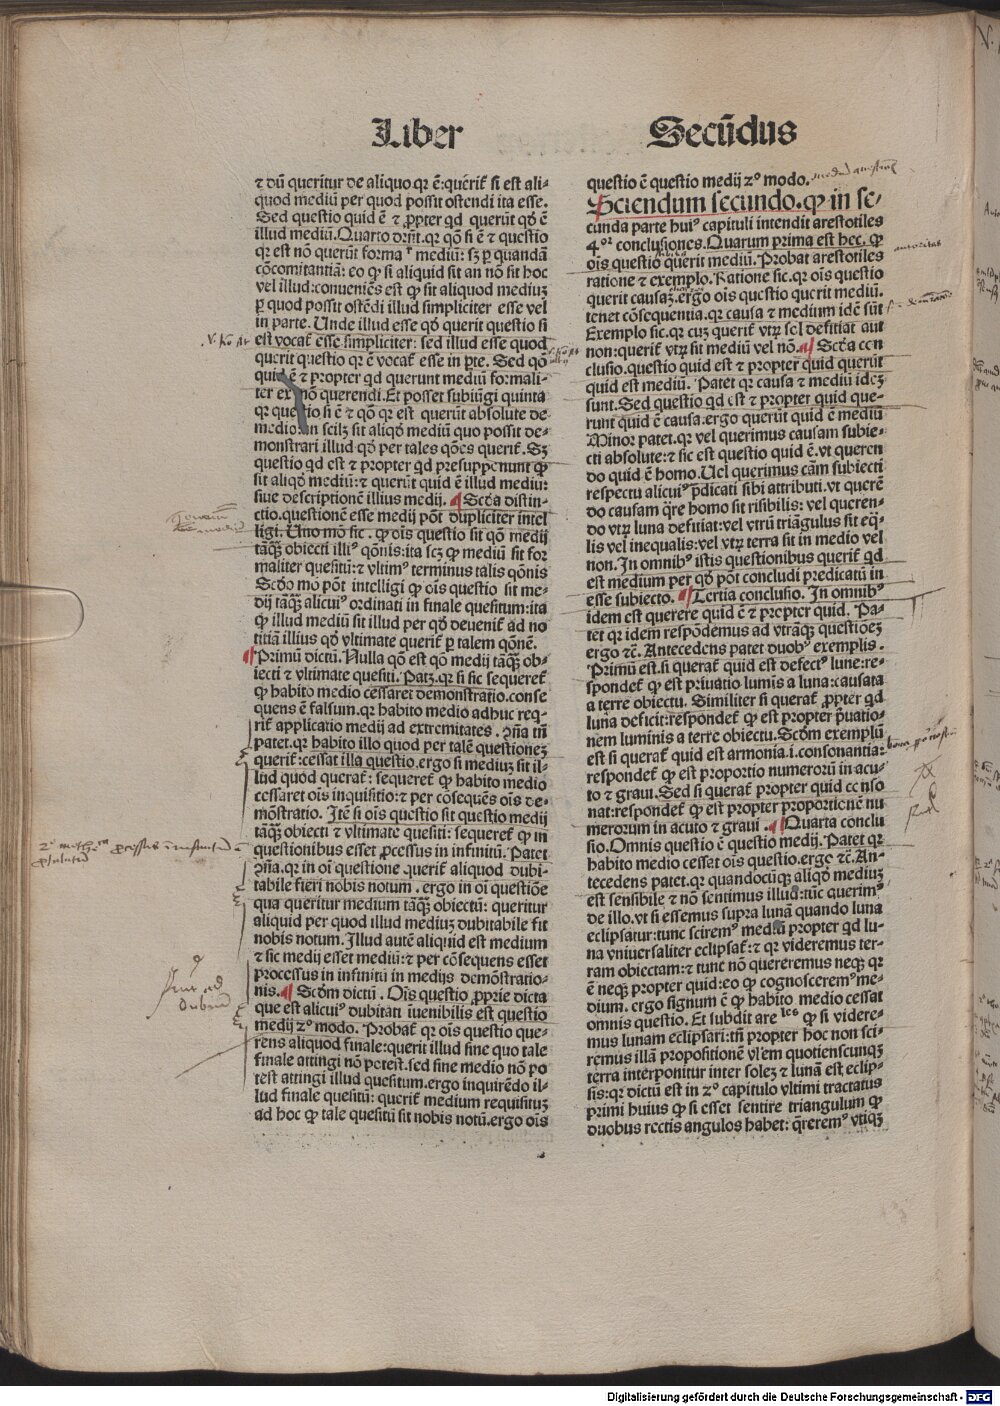 Liber Secūdus
⁊ dū querītur de aliquo qr ē:querit̄ si est ali-
quod mediū per quod possit ostendi ita esse.
Sed questio quid ē ⁊ ꝓpter qd querūt qd̛ ē
illud mediū. Quarto dr̄nt.qr qō si ē ⁊ questio
qr est nō querūt forma mediū: sꝫ ꝑ quandā
cōcomitantiā: eo ꝙ si aliquid sit an nō sit hoc
vel illud:conueniēs est ꝙ sit aliquod mediuꝫ
ꝑ quod possit ostēdi illud simpliciter esse vel
in parte. Unde illud esse qd̛ querit questio si
est vocat̄ esse simpliciter: sed illud esse quod
querit questio qr ē vocat̄ esse in ꝑte. Sed qō
quid ē ⁊ propter qd querunt mediū formali-
ter ex nō querendi. Et posset subiūgi quinta
qr questio si ē ⁊ qō qr est querūt absolute de
medio: an scilꝫ sit aliqd̛ mediū quo possit de-
monstrari illud qd̛ per tales qōes querit̄. Sꝫ
questio qd est ⁊ propter qd presupponunt ꝙ
sit aliqd̛ mediū:⁊ querūt quid ē illud mediū:
siue descriptionē illius medij. ¶ Scd̛a distin-
ctio.questionē esse medij pōt dupliciter intel
ligi. Uno mō sic. ꝙ ois questio sit qō medij
tāꝗꝫ obiecti illi⁹ qōnis:ita scꝫ ꝙ mediū sit for
maliter quesitū:⁊ vltim⁹ terminus talis qōnis
Scd̛o mō pōt intelligi ꝙ ois questio sit me-
dij tāꝗꝫ alicui⁹ ordinati in finale quesitum:ita
ꝙ illud mediū sit illud per qd̛ deuenit̄ ad no
titiā illius qd̛ vltimate querit̄ ꝑ talem qōnē.
¶ Primū dictū. Nulla qō est qō medij tāꝗꝫ ob-
iecti ⁊ vltimate quesiti. Patꝫ.qr si sic sequeret̄
ꝙ habito medio cessaret demonstratio.conse
quens ē falsum.qr habito medio adhuc req̄-
rit̄ applicatio medij ad extremitates. ꝯn̄a tn̄
patet.qr habito illo quod per talē questioneꝫ
querit̄:cessat illa questio.ergo si mediuꝫ sit il-
lud quod querat̄: sequeret̄ ꝙ habito medio
cessaret ois inquisitio:⁊ per cōsequēs ois de-
mōstratio. Itē si ois questio sit questio medij
tāꝗꝫ obiecti ⁊ vltimate quesiti: sequeret̄ ꝙ in
questionibus esset ꝓcessus in infinitū. Patet
ꝯn̄a.qr in oī questione querit̄ aliquod dubi-
tabile fieri nobis notum . ergo in oī questiōe
qua queritur medium tāꝗꝫ obiectū: queritur
aliquid per quod illud mediuꝫ dubitabile fit
nobis notum. Illud autē aliquid est medium
⁊ sic medij esset mediū:⁊ per cōsequens esset
processus in infinitū in medijs demōstratio-
nis.¶ Scd̛m dictū . Ois questio ꝓprie dicta
que est alicui⁹ dubitati iuenibilis est questio
medij z⁰ modo. Probat̄ qr ois questio que-
rens aliquod finale:querit illud sine quo tale
finale attingi nō potest.sed sine medio nō po
test attingi illud quesitum.ergo inquirēdo il-
lud finale quesitū: querit̄ medium requisituꝫ
ad hoc ꝙ tale quesitū sit nobis notū.ergo ois
questio ē questio medij z⁰ modo.
Sciendum secundo.ꝙ in se-
cunda parte hui⁹ capituli intendit arestotiles
4ᵒʳ conclusiones. Quarum prima est hec. ꝙ
ois questio querit mediū. Probat arestotiles
ratione ⁊ exemplo. Ratione sic.qr ois questio
querit causaꝫ.ergo ois questio querit mediū.
tenet cōsequentia.qr causa ⁊ medium idē sūt
Exemplo sic.qr cuꝫ querit̄ vtꝝ sol defitiat aut
non:querit̄ vtꝝ sit mediū vel nō.¶ Scd̛a con
clusio.questio quid est ⁊ propter quid querūt
quid est mediū. Patet qr causa ⁊ mediū ideꝫ
sunt. Sed questio qd est ⁊ propter quid que-
runt quid ē causa.ergo querūt quid ē mediū
Minor patet.qr vel querimus causam subie-
cti absolute:⁊ sic est questio quid ē.vt queren
do quid ē homo. Uel querimus cām subiecti
respectu alicui⁹ p̄dicati sibi attributi.vt querē
do causam q̄re homo sit risibilis: vel queren-
do vtꝝ luna defitiat:vel vtrū triāgulus sit eq̄-
lis vel inequalis:vel vtꝝ terra sit in medio vel
non. In omnib⁹ istis questionibus querit̄ qd
est medium per qd̛ pōt concludi predicatū in
esse subiecto. ¶ Tertia conclusio. In omnib⁹
idem est querere quid ē ⁊ propter quid. Pa-
tet qr idem respōdemus ad vtrāꝗꝫ questioeꝫ
ergo ⁊c̄. Antecedens patet duob⁹ exemplis.
Primū est.si querat̄ quid est defect⁹ lune:re-
spondet̄ ꝙ est priuatio lumīs a luna:causata
a terre obiectu. Similiter si querat̄ ꝓpter qd
luna deficit:respondet̄ ꝙ est propter p̄uatio-
nem luminis a terre obiectu. Scd̛m exemplū
est si querat̄ quid est armonia.i.consonantia:
respondet̄ ꝙ est proportio numerorū in acu-
to ⁊ graui. Sed si querat̄ propter quid conso
nat:respondet̄ ꝙ est propter proportionē nu
merorum in acuto ⁊ graui .¶ Quarta conclu
sio. Omnis questio ē questio medij. Patet qr
habito medio cessat ois questio.ergo ⁊c̄. An-
tecedens patet.qr quandocūqꝫ aliqd̛ mediuꝫ
est sensibile ⁊ nō sentimus illud:tūc querim⁹
de illo.vt si essemus supra lunā quando luna
eclipsatur:tunc scirem⁹ mediū propter qd lu-
na vniuersaliter eclipsat̄:⁊ qr videremus ter-
ram obiectam:⁊ tunc nō quereremus neqꝫ qr
ē neqꝫ propter quid:eo ꝙ cognoscerem⁹ me-
dium. ergo signum ē ꝙ habito medio cessat
omnis questio. Et subdit are ˡᵉˢ ꝙ si videre-
mus lunam eclipsari:tn̄ propter hoc non sci-
remus illā propositionē vl̄em quotienscunqꝫ
terra interponitur inter soleꝫ ⁊ lunā est eclip-
sis:qr dictū est in z⁰ capitulo vltimi tractatus
primi huius ꝙ si esset sentire triangulum ꝙ
duobus rectis angulos habet: q̄rerem⁹ vtiqꝫ
Digitalisierung gefördert durch die Deutsche Forschungsgemeinschaft - DFG